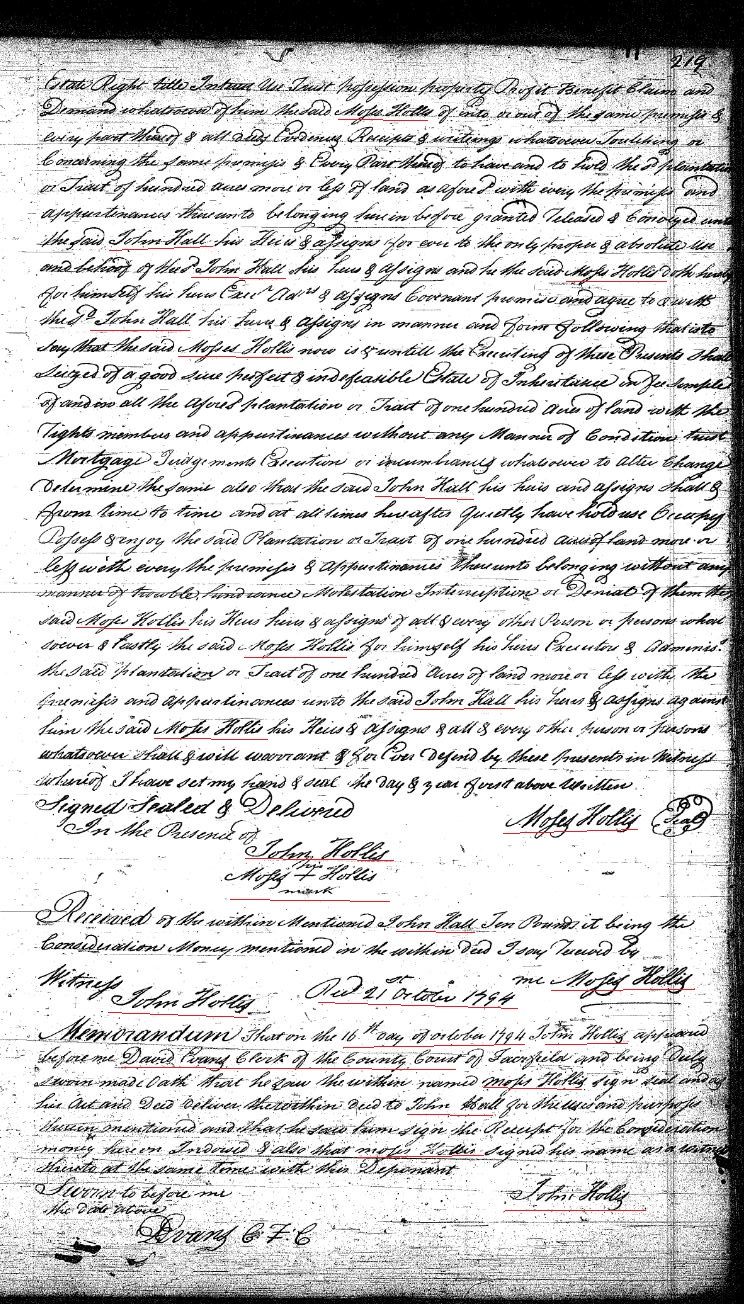 219
Estate Right title Interest Use Trust possession property Profit Benefit Claim and
Demand whatsoever of him the said Moses Hollis of into or out of the same premises &
every part thereof & all deeds Evidences Receipts & writings whatsoever Touching or
Concerning the same premises & Every Part thereof to have and to hold the sd plantation
or Tract of hundred acres more or less of land as afore sd with every the premises and
appurtinances thereunto belonging herein before granted Released & Conveyed unto
the said John Hall his Heirs & assigns for ever to the only proper & absolute use
and behoof of the sd John Hall his heirs & assigns and he the said Moses Hollis doth hereby
for himself his heirs Execrs Admrs & assigns Covenant promise and agree to & with
the sd John Hall his heirs & assigns in manner and form following that is to
say that the said Moses Hollis now is & untill the Executing of these Presents shall
seized of a good sure perfect & indefeasible Estate of Inheritance in fee simple
of and in all the afores'd plantation or Tract of one hundred acres of land with the
rights members and appurtinances without any Manner of Condition trust
Mortgage Judgements Execution or incumbrances whatsoever to alter Change
determine the same also that the said John Hall his heirs and assigns shall &
from time to time and at all times hereafter Quietly have hold use Occupy
Possess & enjoy the said Plantation or Tract of one hundred acres of land more or
less with every the premises & appurtinances there unto belonging without any
manner of trouble hindrance Molestation Interruption or Denial of them the
said Moses Hollis his Heirs heirs & assigns of all & every other Person or persons what
soever & Lastly the said Moses Hollis for himself his heirs Executors & Adminis.
the said plantation or Tract of one hundred acres of land more or less with the
premises and appurtinances unto the said John Hall his heirs & assigns against
him the said Moses Hollis his Heirs & assigns & all & every other person or persons
whatsoever shall & will warrant & for Ever defend by these presents in Witness
whereof I have set my hand & seal the day & year first above Written
Signed Sealed & Delivered
In the Presence of
Moses Hollis Seal
John Hollis
his
Moses + Hollis
mark
Received of the within Mentioned John Hall Ten Pounds it being the
Consideration Money mentioned in the within deed I say received by
me Moses Hollis
Witness
John Hollis
Recd 21st October 1794
Memorandum That on the 16th day of october 1794 John Hollis appeared
before me David Evans Clerk of the County Court of Fairfield and being Duly
sworn made Oath that he saw the within named moses Hollis sign seal and as
his Act and Deed deliver the within deed to John Hall for the uses and purposes
therein mentioned and that he saw him sign the Receipt for the Consideration
money hereon Indorsed & also that moses Hollis signed his name as a witness
thereto at the same time with this Deponant
Sworn to before me
the date above
John Hollis
D Evans C F C